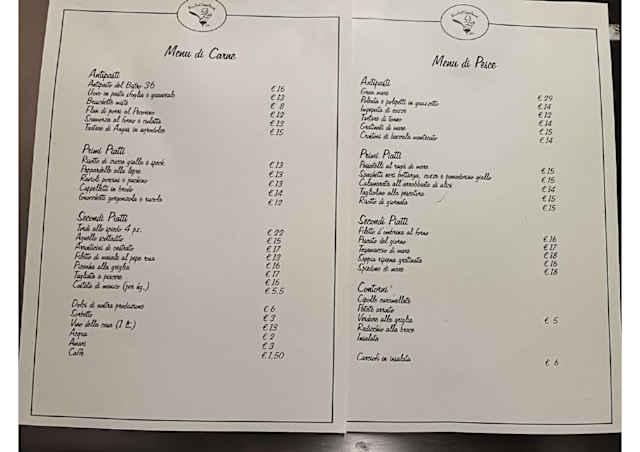 Menu di Carne
Antipasti
Antipasto del Bistro 36 € 16
Uovo in pasta sfoglia e guanciale € 13
Bruschette miste € 8
Flan di porri al Pecorino € 12
Scamorza al forno e culatta € 13
Tartare di Angus in agrodolce € 15
Primi Piatti
Risotto di zucca gialla e speck € 13
Pappardelle alla lepre € 13
Ravioli porcini e pachino € 13
Cappelletti in brodo € 14
Gnocchetti gorgonzola e rucola € 12
Secondi Piatti
Tordi allo spiedo 4 pz. € 22
Agnello scottadito € 15
Arrosticini di castrato € 17
Filetto di maiale al pepe rosa € 13
Picanha alla griglia € 16
Tagliata a piacere € 17
Costata di manzo (per hg.) € 16
€ 5,5
Dolci di nostra produzione € 6
Sorbetto € 3
Vino della casa (1 lt.) € 13
Acqua € 2
Amari € 3
Caffè € 1,50
Menu di Pesce
Antipasti
Gran mare € 29
Polenta e polipetti in guazzetto € 14
Impepata di cozze € 12
Tartare di tonno € 14
Gratinati di mare € 15
Crostoni di baccalà mantecato € 14
Primi Piatti
Passatelli al ragù di mare € 15
Spaghetti neri bottarga, cozze e pomodorino giallo € 15
Calamarata all'arrabbiata di alici € 14
Tagliolino alla pescatora € 15
Risotto di giornata € 15
Secondi Piatti
Filetto d'ombrina al forno € 16
Pescato del giorno € 17
Tegamaccio di mare € 18
Seppia ripiena gratinata € 16
Spiedone di mare € 18
Contorni
Cipolle caramellate
Patate arrosto
Verdure alla griglia € 5
Radicchio alla brace
Insalata
Carciofi in insalata € 6